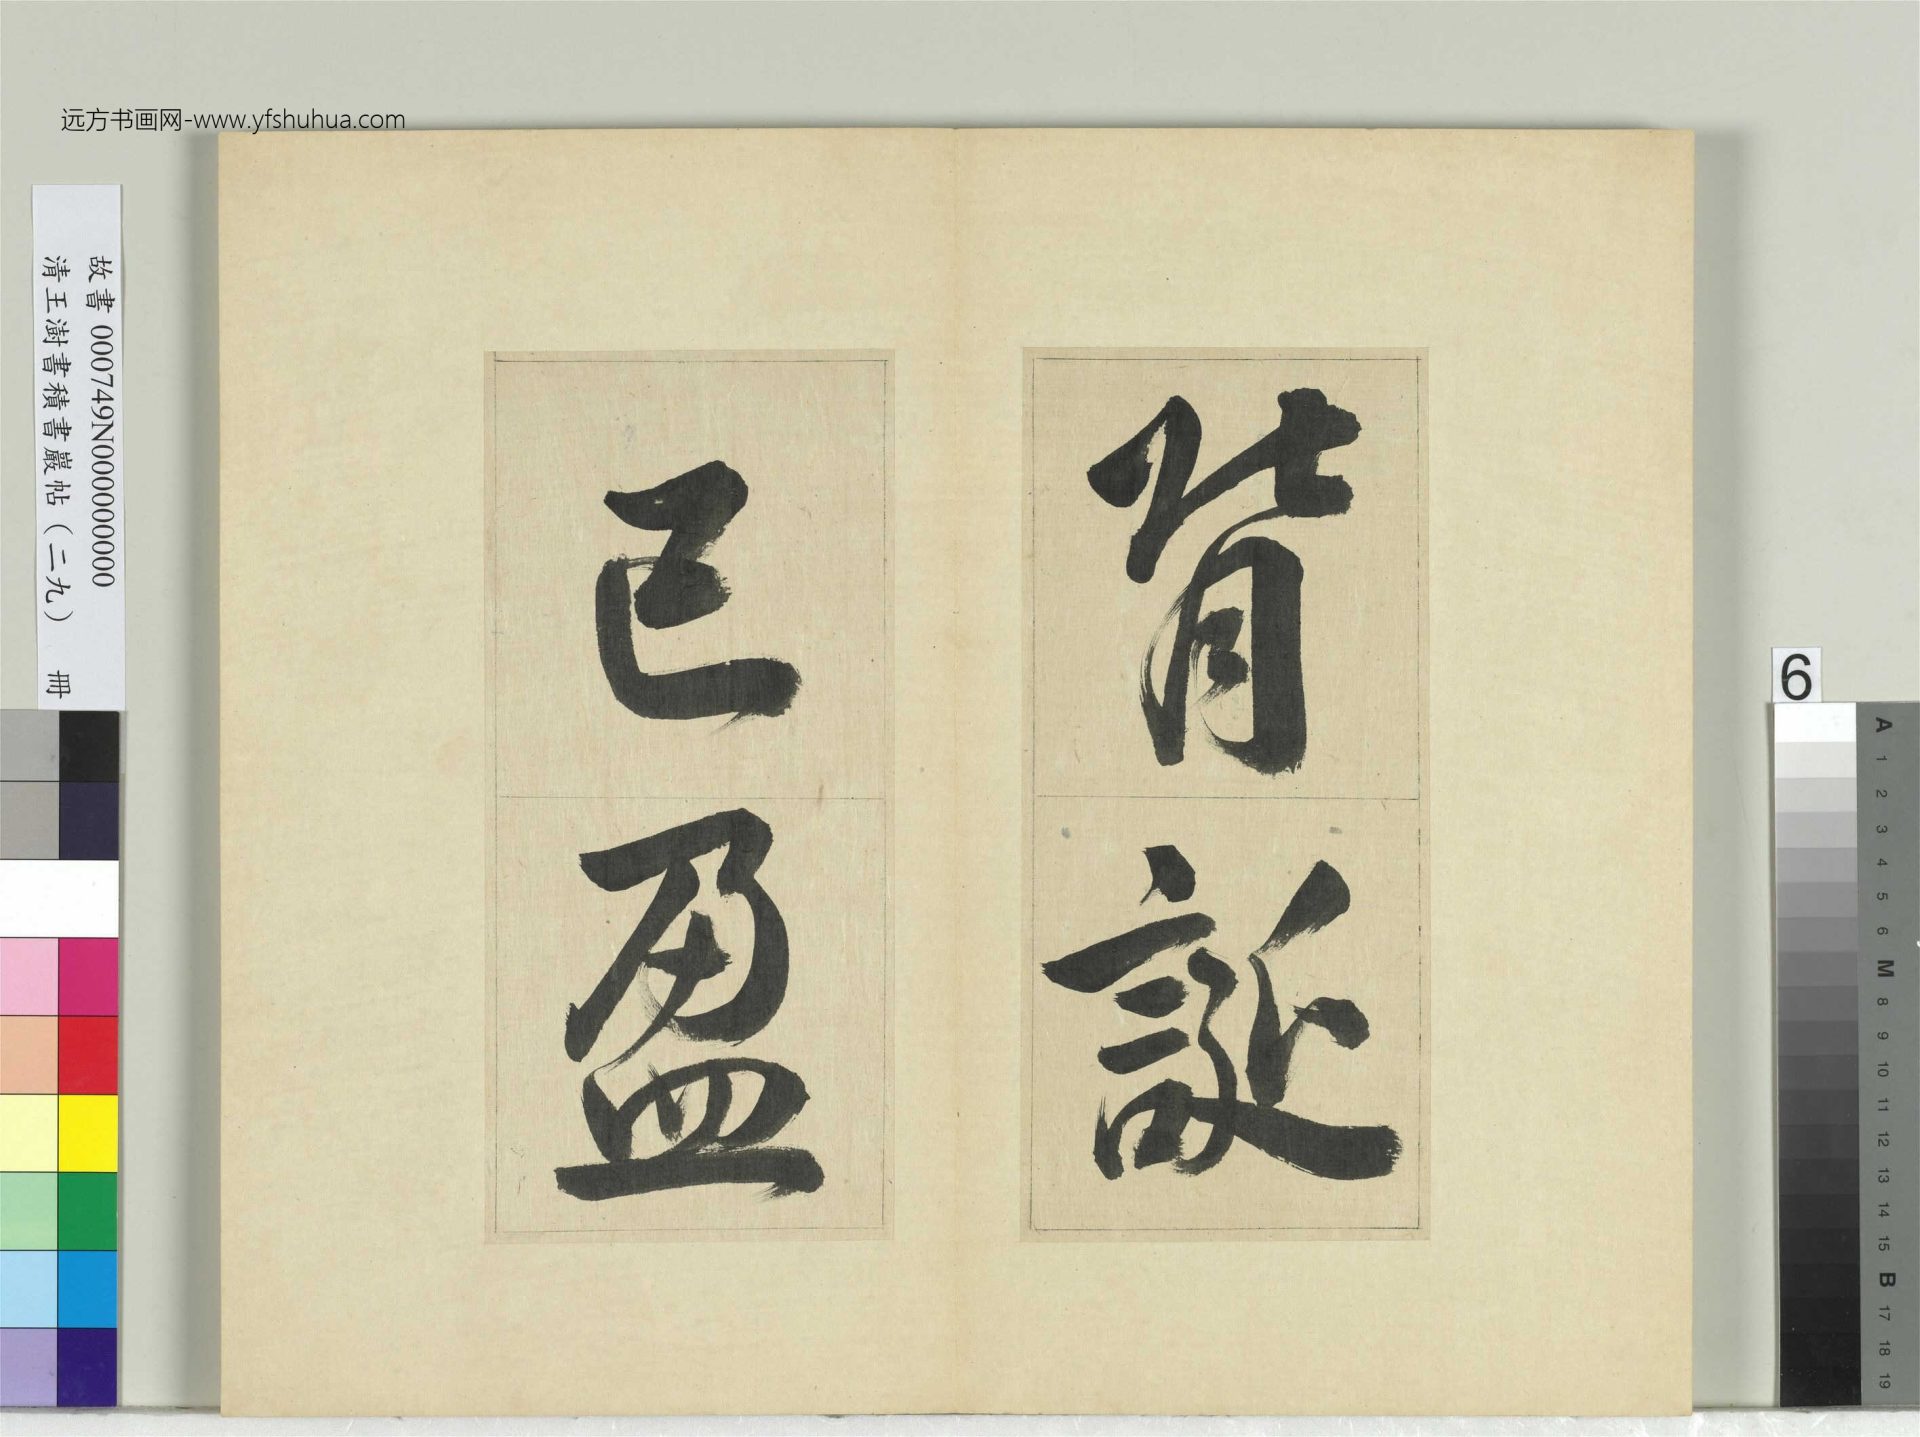 远方书画网-www.yfshuhua.com
故書 000749N000000000
清王澍書積書巖帖（二九） 冊
背誕
已盈
6
A 1 2 3 4 5 6 M 8 9 10 11 12 13 14 15 B 17 18 19